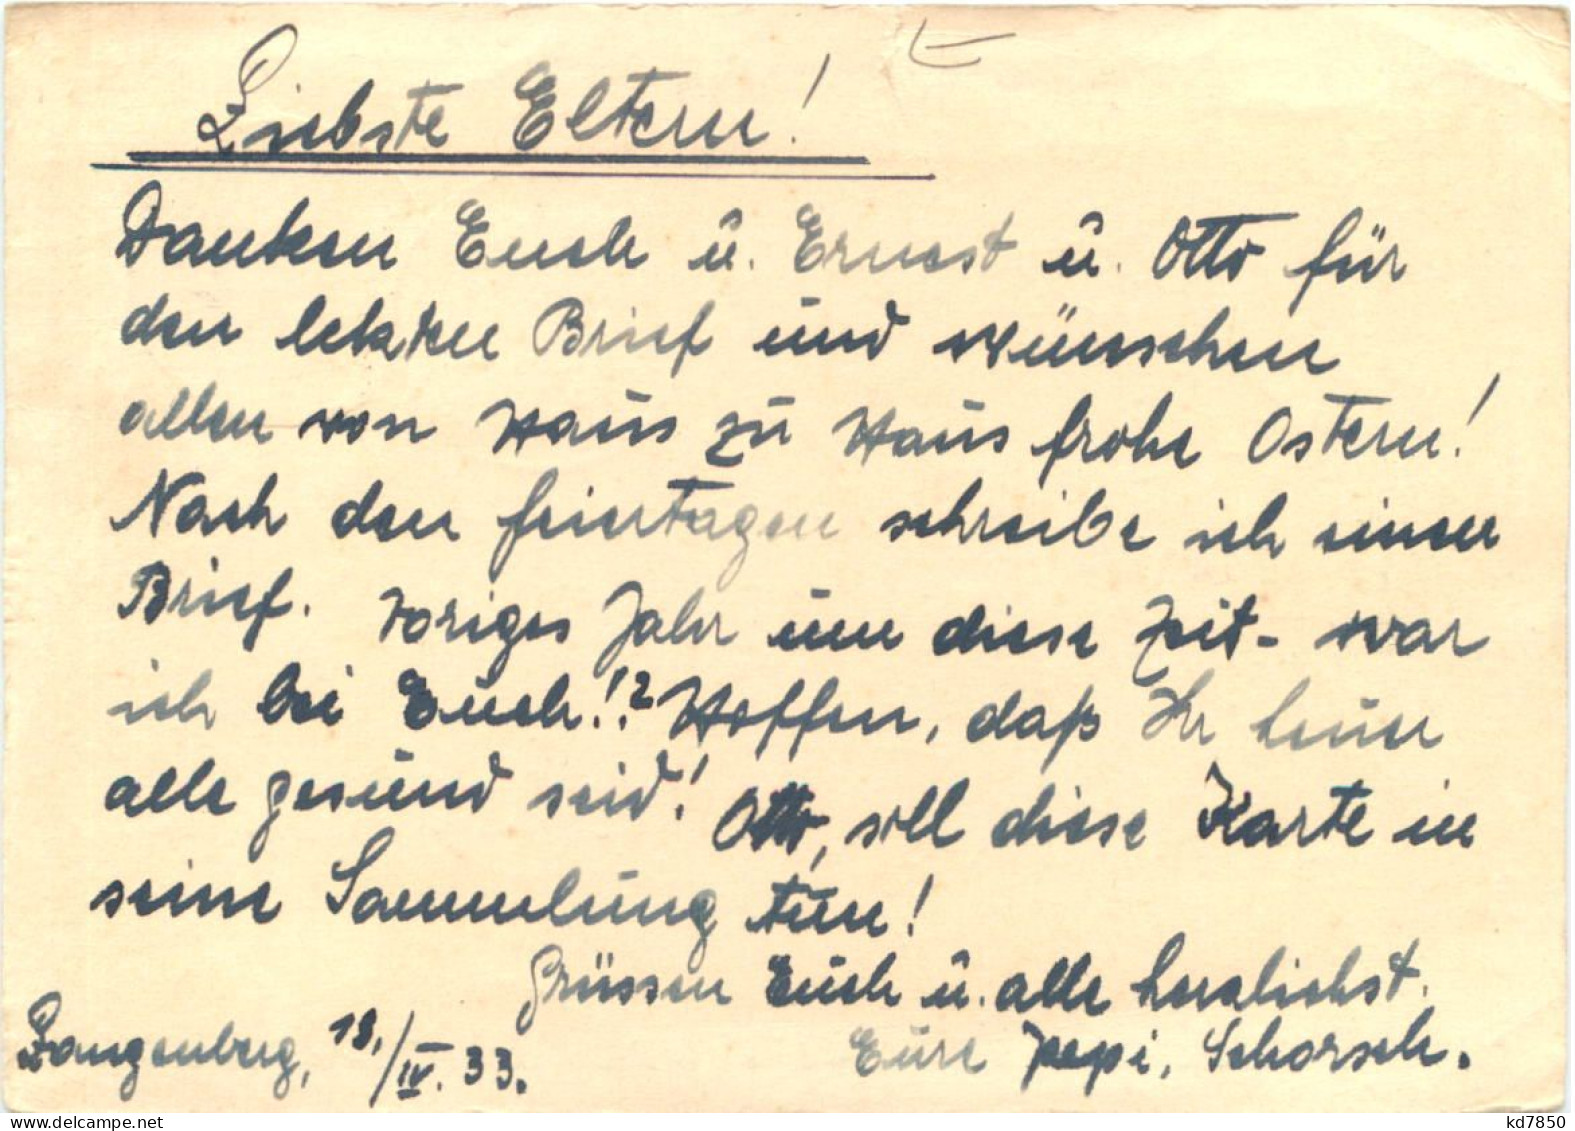 Liebste Eltern!
Danken Euch u. Ernest u. Otto für
den letzten Brief und wünschen
allen von Haus zu Haus frohe Ostern!
Nach den Feiertagen schreibe ich einen
Brief. Voriges Jahr um diese Zeit - war
ich bei Euch!? Hoffen, daß Ihr
alle gesund seid! Otto, soll diese Karte in
seine Sammlung tun!
Grüssen Euch u. alle herzlichst.
Langenberg, 13./IV. 33. Eure Pepi, Schorsch.
delcampe.net
kd7850